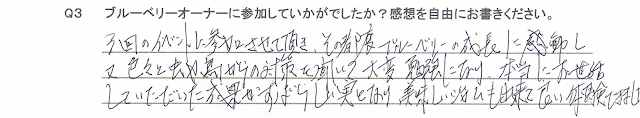 Q3 ブルーベリーオーナーに参加していかがでしたか？感想を自由にお書きください。
3回のイベントに参加させて頂き、その都度ブルーベリーの成長に感動し
又色々と虫や鳥からの対策を聞いて大変勉強になり、本当にお世話
していただいた成果がすばらしい実となり美味しい も出来てない体験できまし